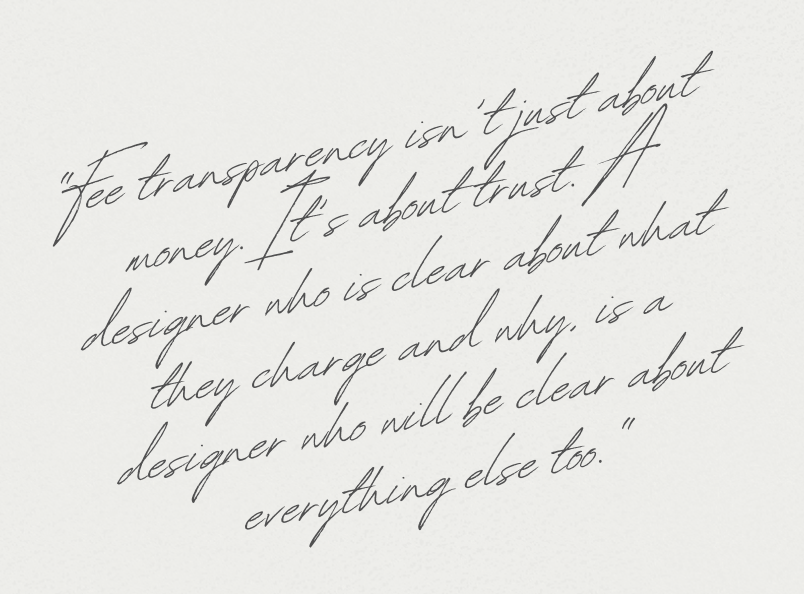 "Fee transparency isn't just about
money. It's about trust. A
designer who is clear about what
they charge and why, is a
designer who will be clear about
everything else too."